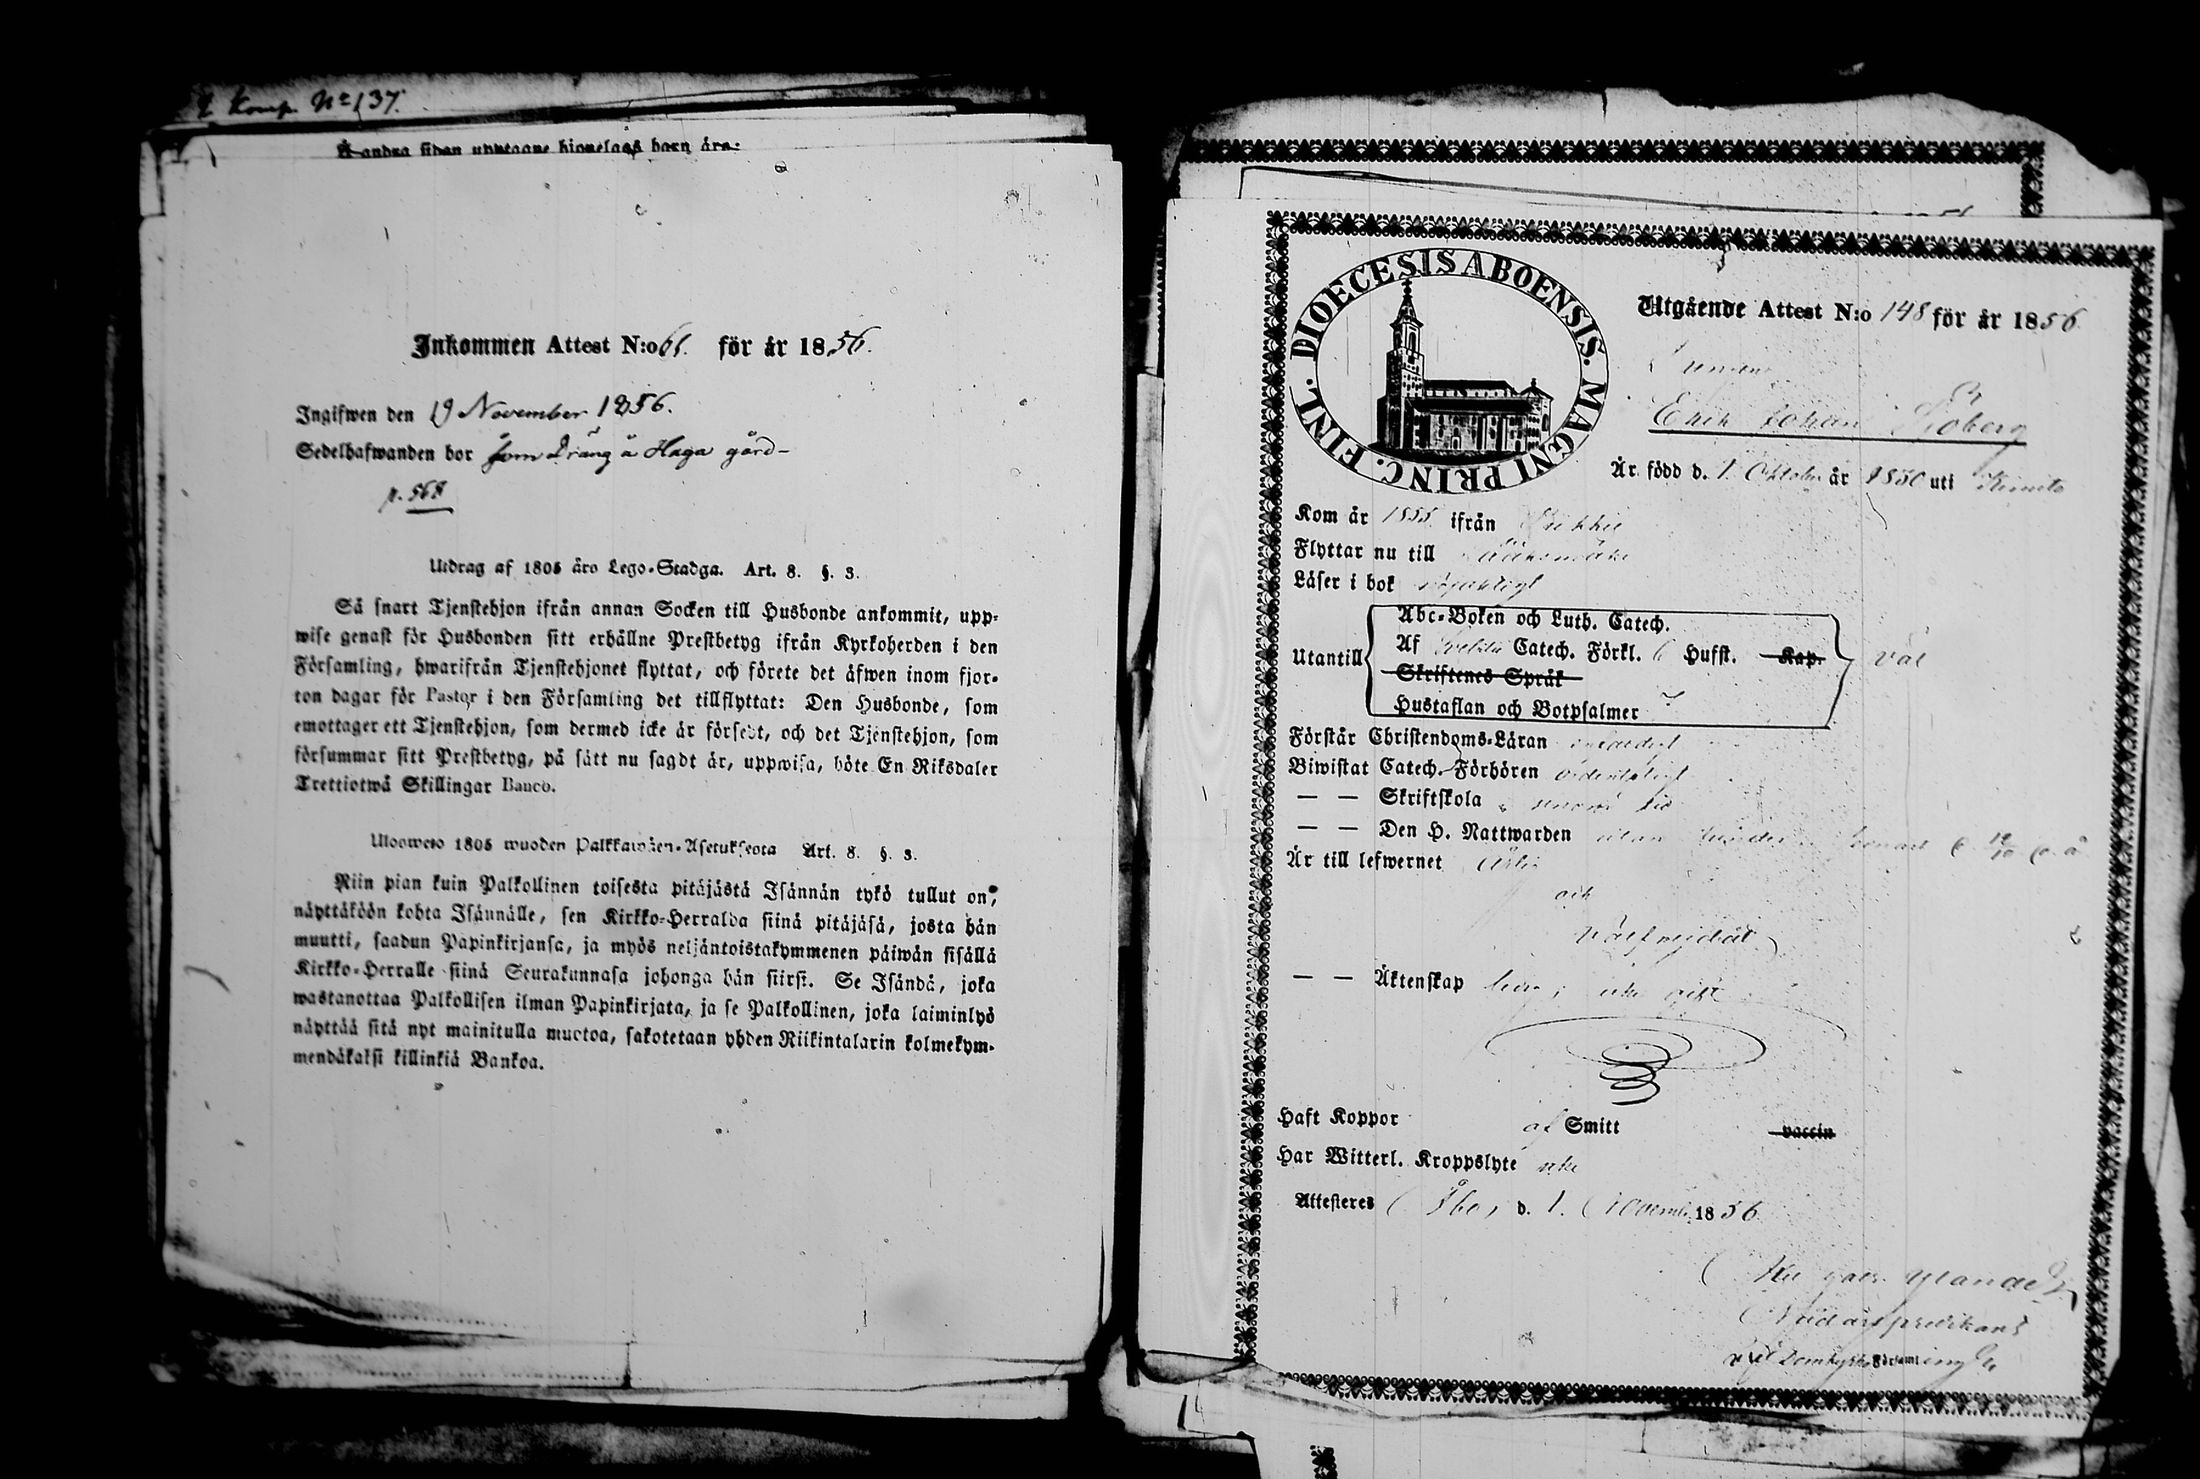 Komp. No 137.
Å andra sidan upptagne hionelags barn äro:
Inkommen Attest N:o 61. för år 1856.
Ingifwen den 19 November 1856.
Sedelhafwanden bor som Dräng å Haga gård –
p. 568
Utdrag af 1805 års Lego-Stadga. Art. 8. §. 3.
Så snart Tjenstehjon ifrån annan Socken till Husbonde ankommit, upp-
wise genast för Husbonden sitt erhållne Prestbetyg ifrån Kyrkoherden i den
Församling, hwarifrån Tjenstehjonet flyttat, och förete det äfwen inom fjor-
ton dagar för Pastor i den Församling det tillflyttat: Den Husbonde, som
emottager ett Tjenstehjon, som dermed icke är försedt, och det Tjenstehjon, som
försummar sitt Prestbetyg, på sätt nu sagdt är, uppwisa, böte En Riksdaler
Trettiotwå Skillingar Banco.
Ulosweto 1805 wuoden Palkkawäen-Asetuksesta Art. 8. §. 3.
Niin pian kuin Palkollinen toisesta pitäjästä Isännän tykö tullut on,
näyttäköön kohta Isännälle, sen Kirkko-Herralda siinä pitäjäsä, josta hän
muutti, saadun Papinkirjansa, ja myös neljäntoistakymmenen päiwän sisällä
Kirkko-Herralle siinä Seurakunnasa johonga hän siirst. Se Isändä, joka
wastanottaa Palkollisen ilman Papinkirjata, ja se Palkollinen, joka laiminlyö
näyttää sitä nyt mainitulla muotoa, sakotetaan yhden Riikintalarin kolmekym-
mendäkaksi killinkiä Bankoa.
DIOECESIS ABOENSIS. MAGNI PRINC. FINL.
Utgående Attest N:o 148 för år 1856
Drengen
Erik Johan Sjöberg
Är född d. 1. Oktober år 1830 uti Kimito
Kom år 1855 ifrån
Flyttar nu till
Läser i bok
Abc-Boken och Luth. Catech.
Utantill Af Svebilii Catech. Förkl. 6 Hufst. Kap. väl
Skriftenes Språk
Hustaflan och Botpsalmer
Förstår Christendoms-Läran
Biwistat Catech. Förhören ordentligt
— — Skriftskola i senare tid
— — Den H. Nattwarden utan hinder senast
Är till lefwernet ärlig
och
välfrejdad
— — Äktenskap ledig; icke gift
Haft Koppor af Smitt vaccin
Har Witterl. Kroppslyte icke
Attesteres Åbo, d. 1. November 1856
Nådårspredikant
Domkyrko Församling